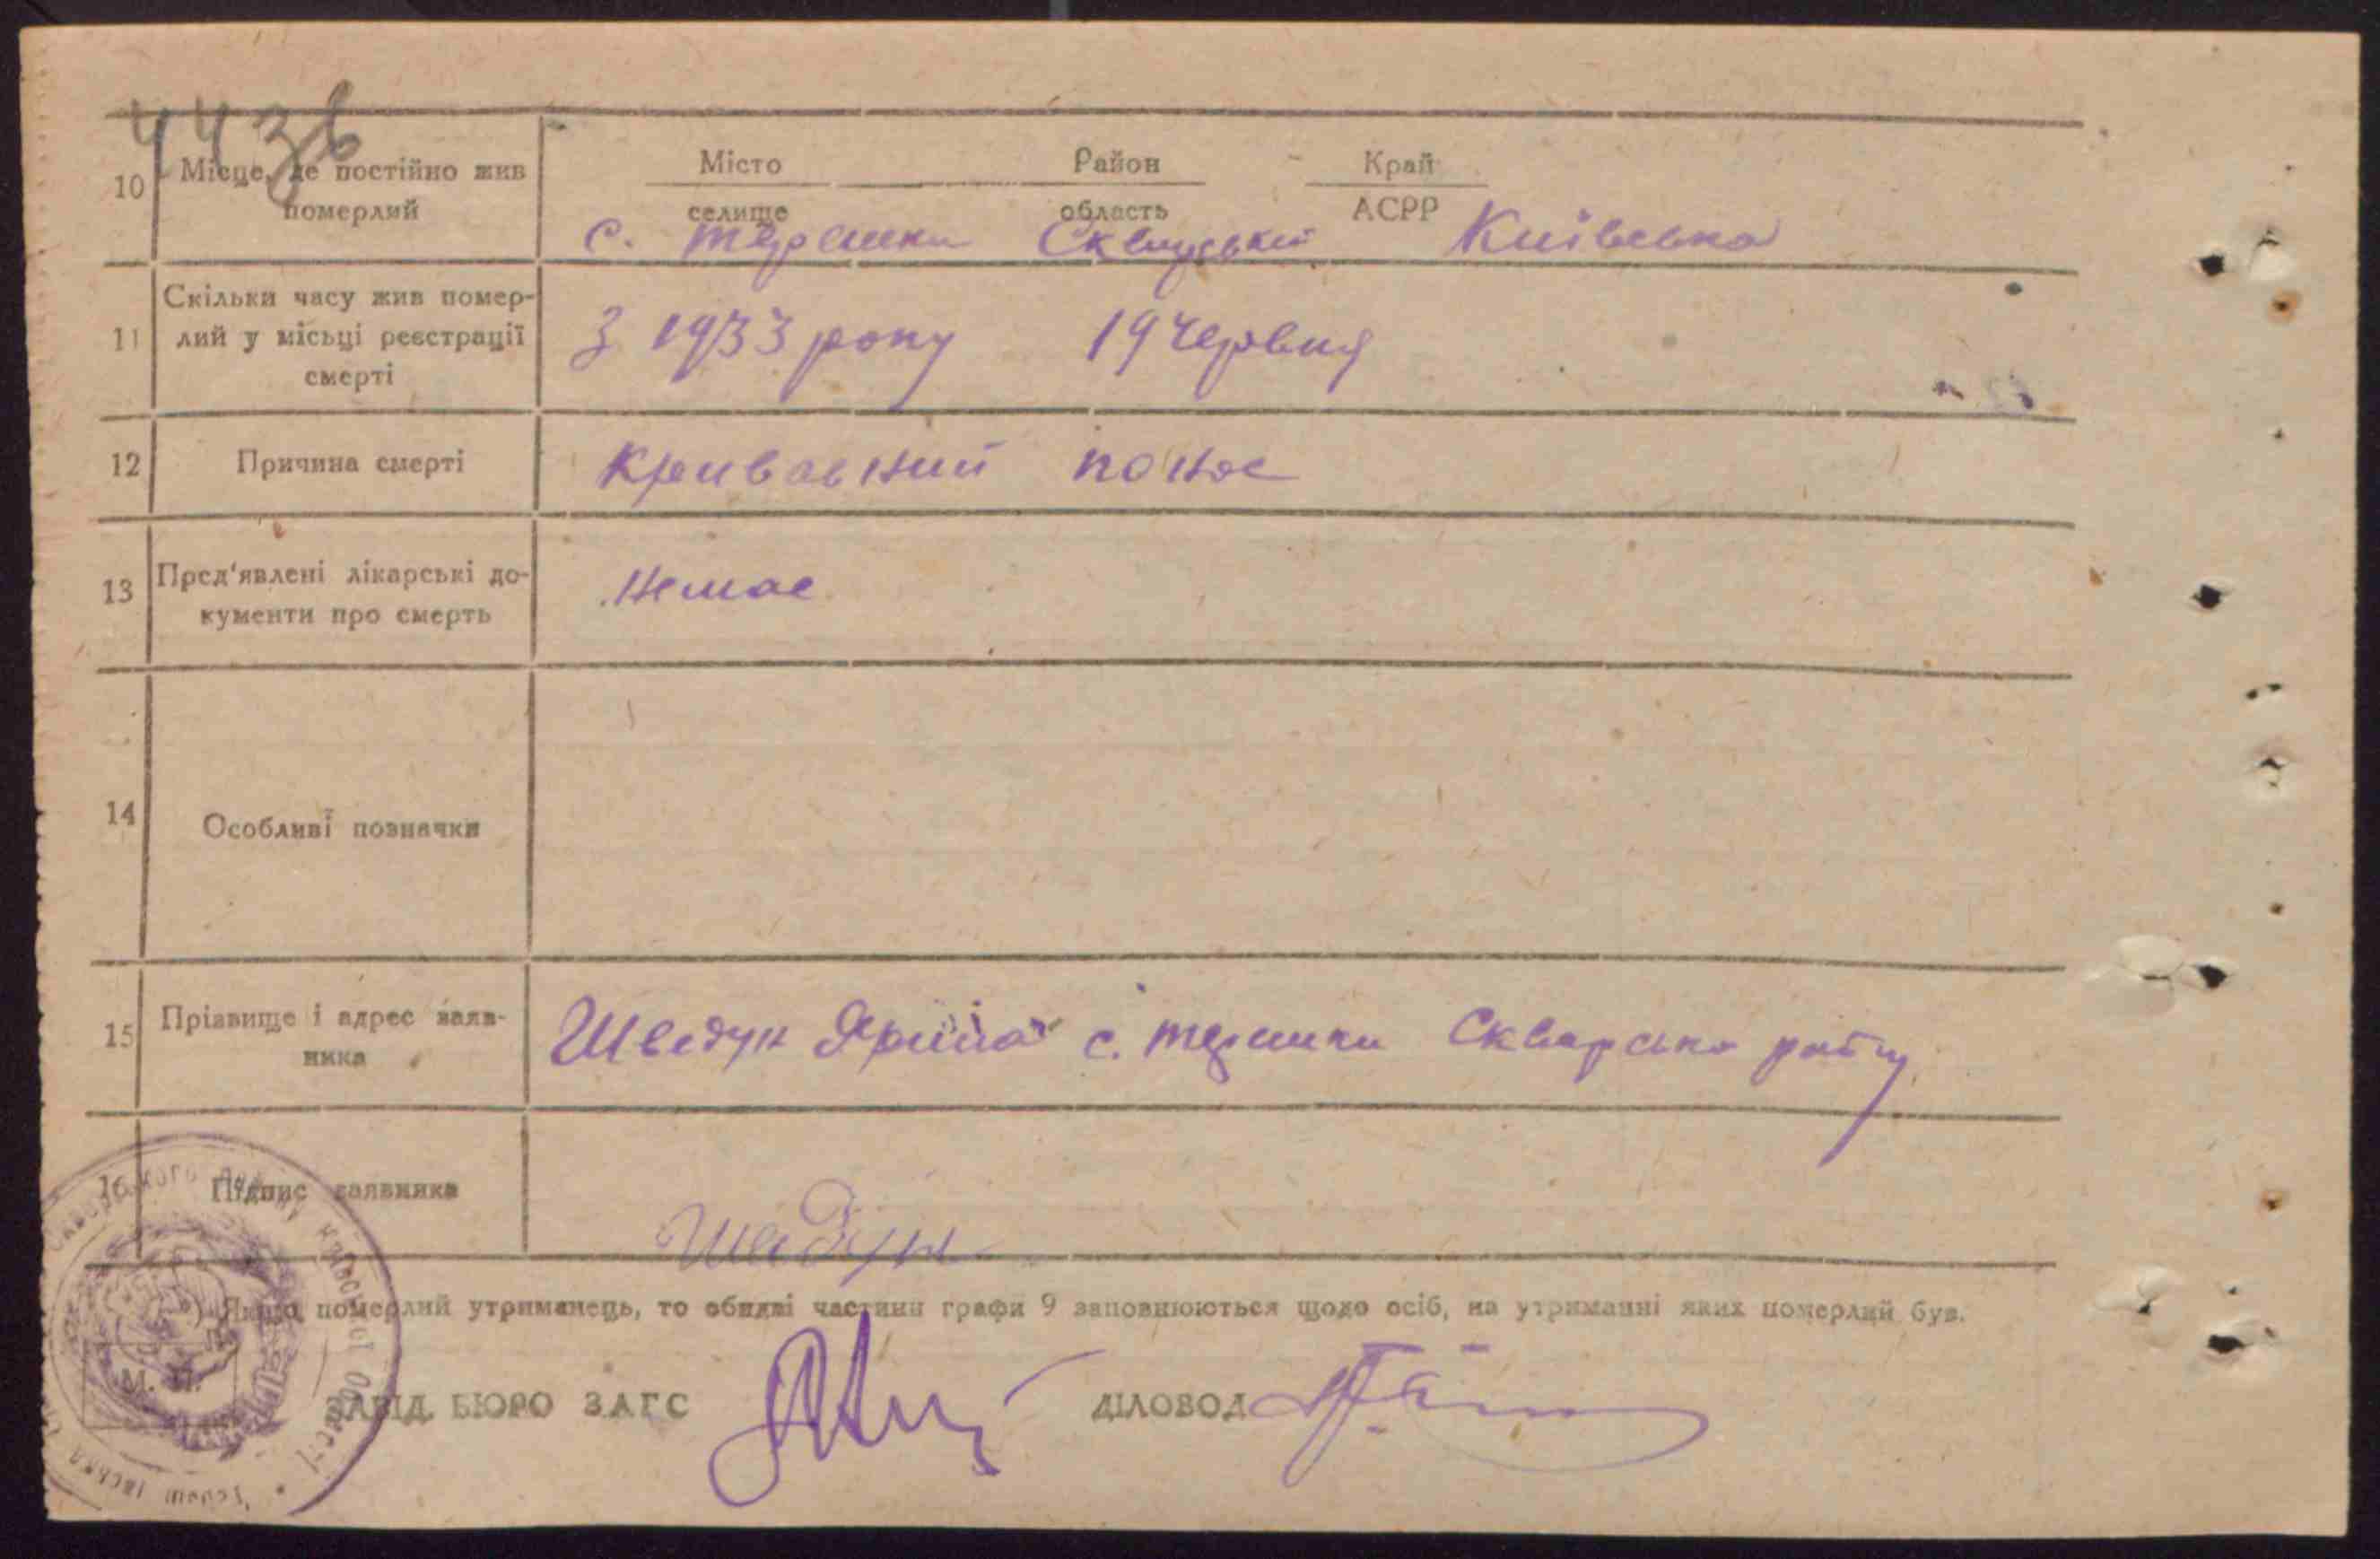 4436
Місто Район Край
10 Місце, де постійно жив
померлий
селище область АСРР
с. Терешки Сквирський Київська
11 Скільки часу жив помер-
лий у місьці реєстрації
смерті
З 1933 року 19 червня
12 Причина смерті Кривавний понос
13 Пред'явлені лікарські до-
кументи про смерть
Немає
14 Особливі позначки
15 Прізвище і адрес заяв-
ника
Шведун с. Терешки Сквирсько району
16 Підпис заявника
Шведун
*) Якщо померлий утриманець, то обидві частини графи 9 заповнюються щодо осіб, на утриманні яких померлий був.
М. П.
ЗАВІД. БЮРО ЗАГС ДІЛОВОД
Сквирського району Київської Області